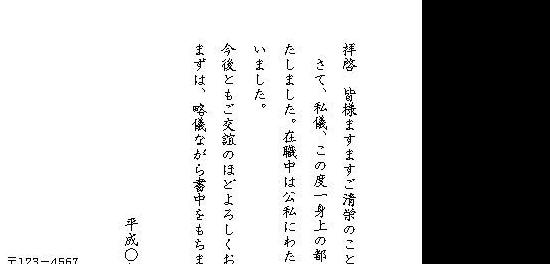 拝啓　皆様ますますご清栄のこと
さて、私儀、この度一身上の都
たしました。在職中は公私にわた
いました。
今後ともご交誼のほどよろしくお
まずは、略儀ながら書中をもちま
平成〇
〒123−4567